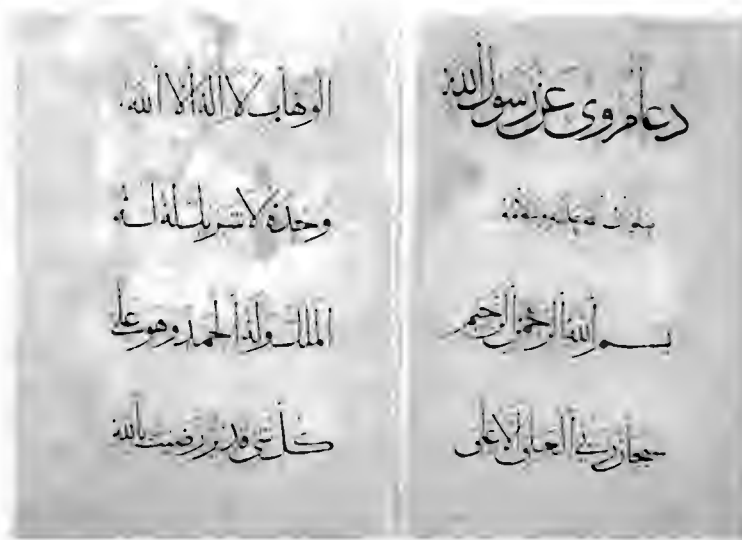 دعا مروی عن رسول الله
صلوات الله عليه
بسم الله الرحمن الرحيم
سبحان ربي العلي الاعلى
الوهاب لا اله الا الله
وحده لا شريك له له
الملك وله الحمد وهو على
كل شي قدير رضيت بالله